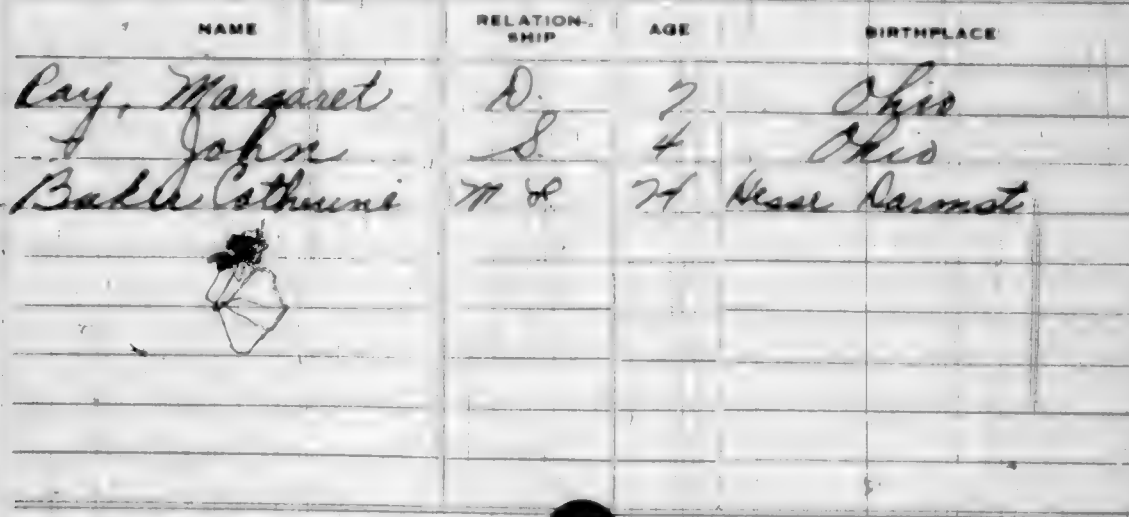 NAME RELATION-SHIP AGE BIRTHPLACE
Ray, Margaret D. 7 Ohio
John S. 4 Ohio
Baker Catherine M L 74 Hesse Darmst